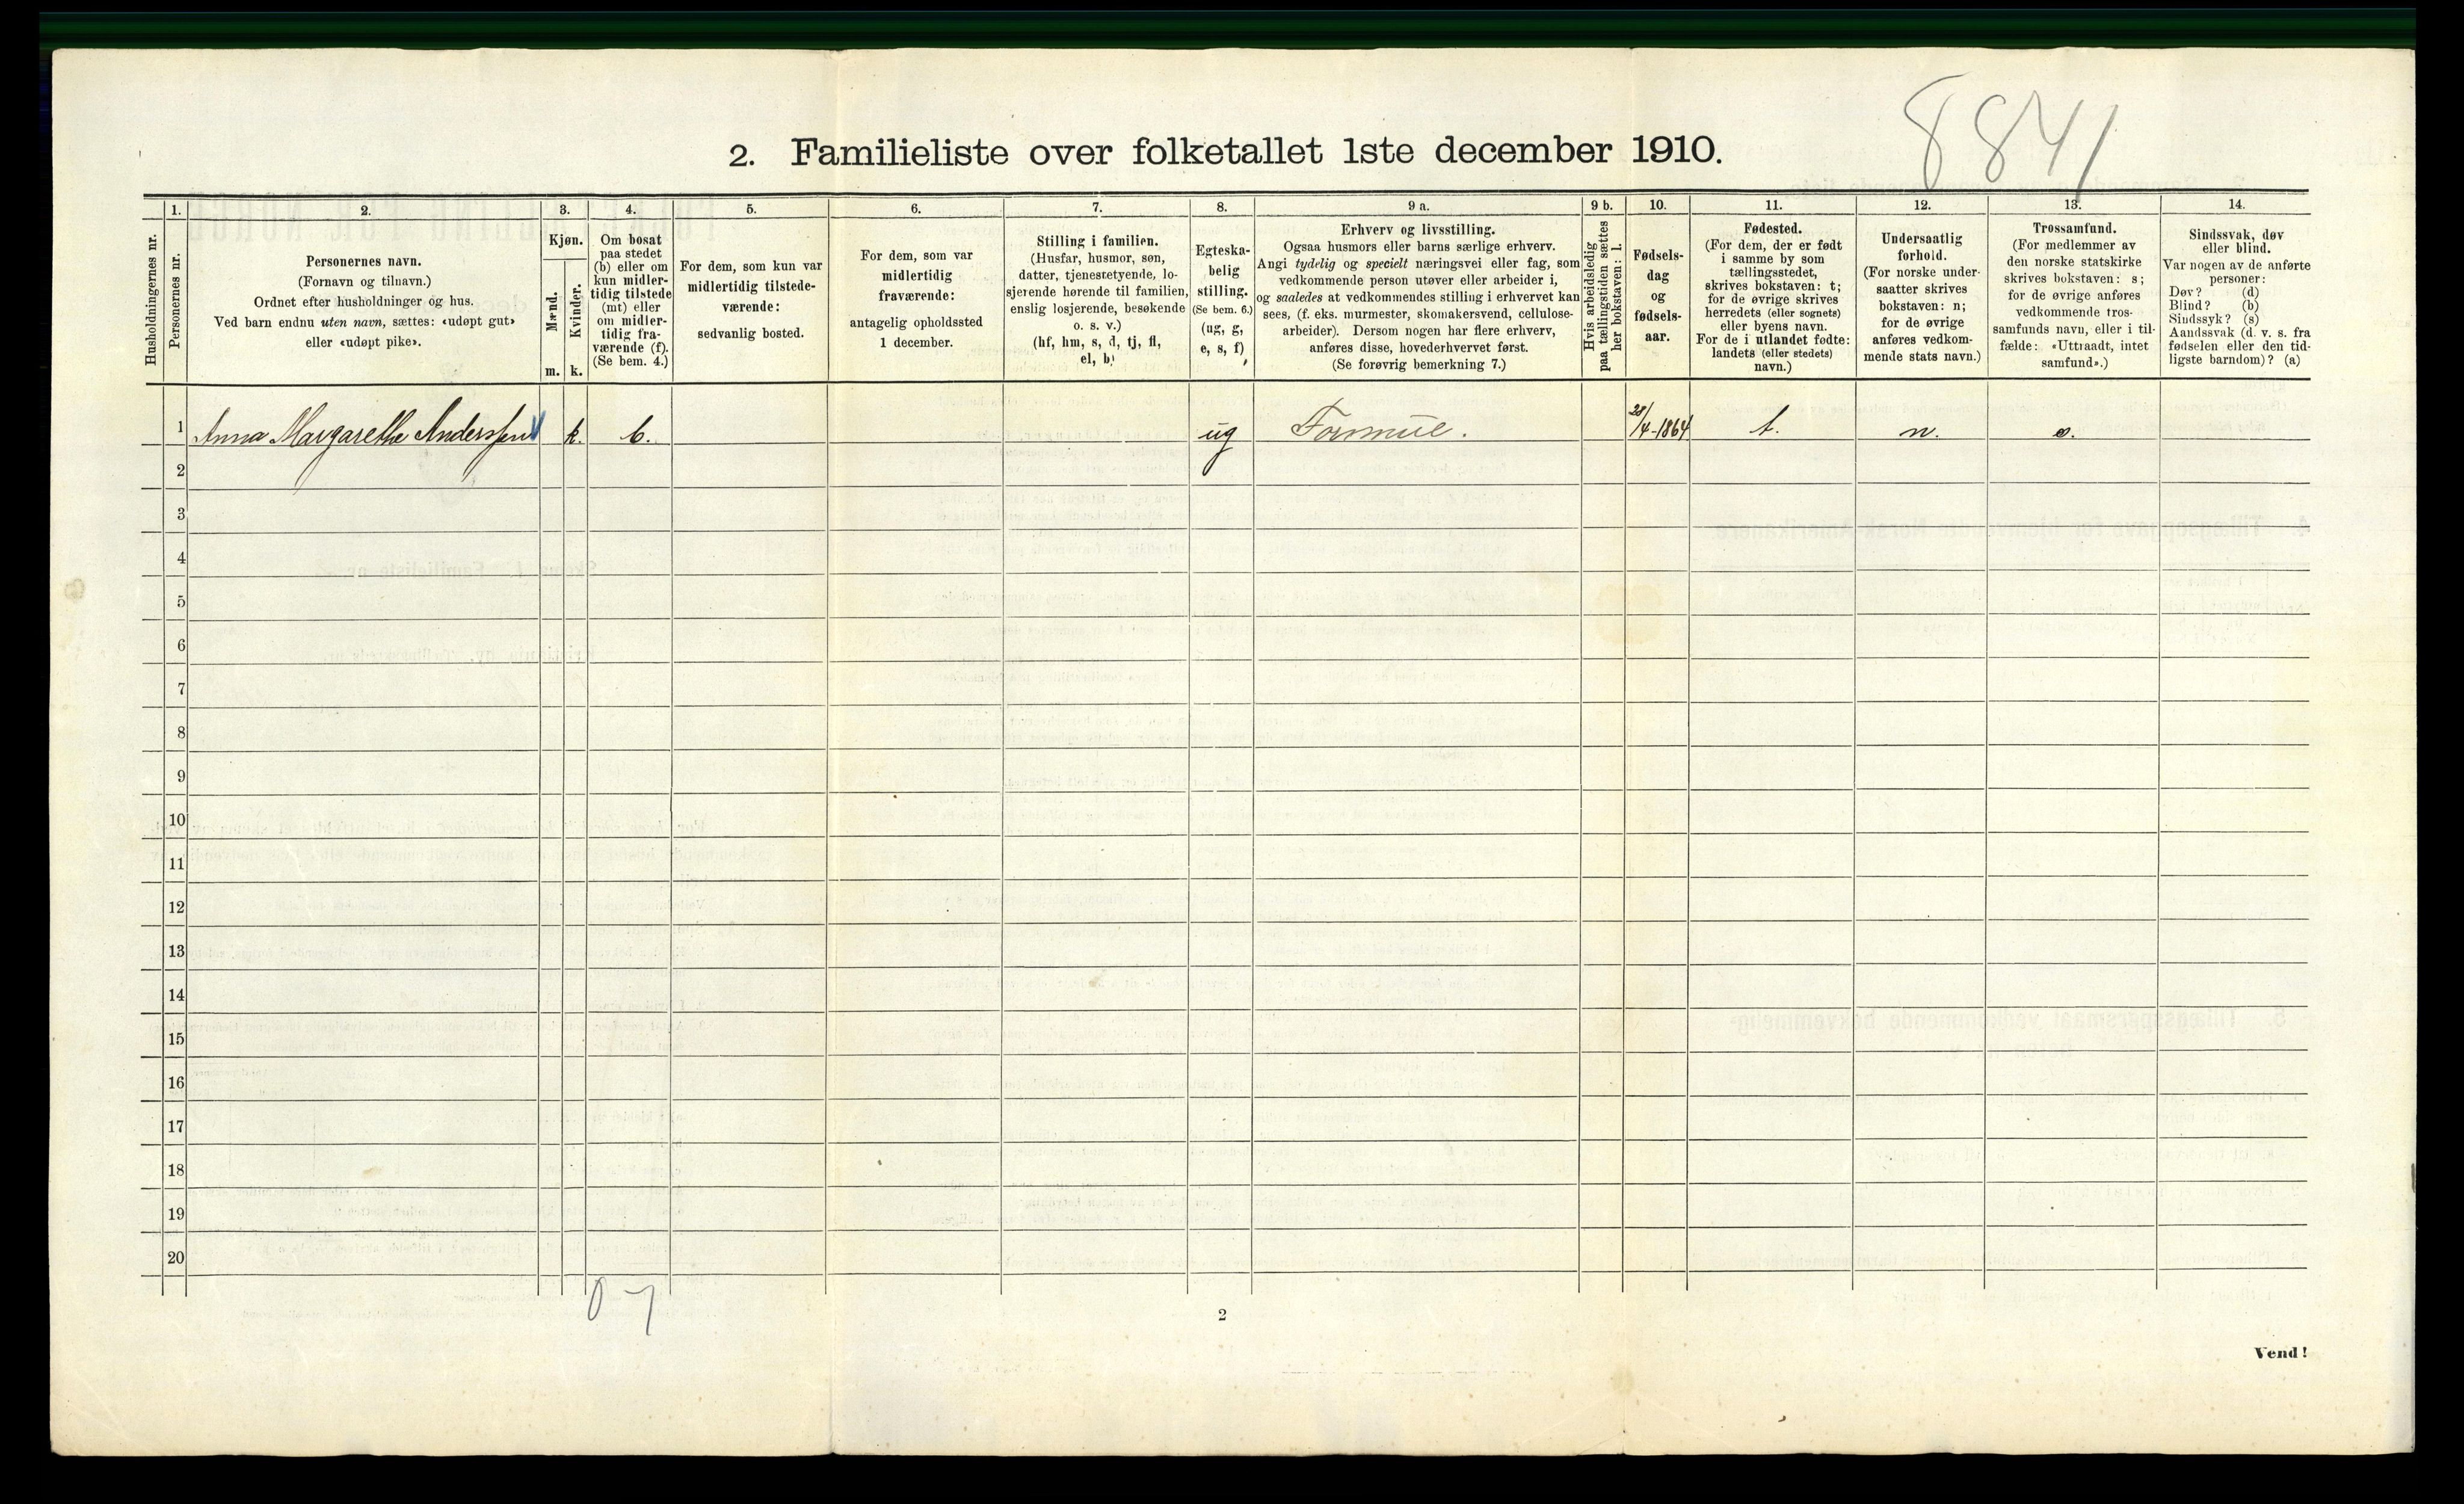 8841
2. Familieliste over folketallet 1ste december 1910.
Husholdningernes nr.
1.
Personernes nr.
2.
Personernes navn.
(Fornavn og tilnavn.)
Ordnet efter husholdninger og hus.
Ved barn endnu uten navn, sættes: «udøpt gut»
eller «udøpt pike».
3.
Kjøn.
Mænd.
Kvinder.
m. k.
4.
Om bosat
paa stedet
(b) eller om
kun midler-
tidig tilstede
(mt) eller
om midler-
tidig fra-
værende (f).
(Se bem. 4.)
5.
For dem, som kun var
midlertidig tilstede-
værende:
sedvanlig bosted.
6.
For dem, som var
midlertidig
fraværende:
antagelig opholdssted
1 december.
7.
Stilling i familien.
(Husfar, husmor, søn,
datter, tjenestetyende, lo-
sjerende hørende til familien,
enslig losjerende, besøkende
o. s. v.)
(hf, hm, s, d, tj, fl,
el, b)
8.
Egteska-
belig
stilling.
(Se bem. 6.)
(ug, g,
e, s, f)
9 a.
Erhverv og livsstilling.
Ogsaa husmors eller barns særlige erhverv.
Angi tydelig og specielt næringsvei eller fag, som
vedkommende person utøver eller arbeider i,
og saaledes at vedkommendes stilling i erhvervet kan
sees, (f. eks. murmester, skomakersvend, cellulose-
arbeider). Dersom nogen har flere erhverv,
anføres disse, hovederhvervet først.
(Se forøvrig bemerkning 7.)
9 b.
Hvis arbeidsledig
paa tællingstiden sættes
her bokstaven: l.
10.
Fødsels-
dag
og
fødsels-
aar.
11.
Fødested.
(For dem, der er født
i samme by som
tællingsstedet,
skrives bokstaven: t;
for de øvrige skrives
herredets (eller sognets)
eller byens navn.
For de i utlandet fødte:
landets (eller stedets)
navn.)
12.
Undersaatlig
forhold.
(For norske under-
saatter skrives
bokstaven: n;
for de øvrige
anføres vedkom-
mende stats navn.)
13.
Trossamfund.
(For medlemmer av
den norske statskirke
skrives bokstaven: s;
for de øvrige anføres
vedkommende tros-
samfunds navn, eller i til-
fælde: «Uttraadt, intet
samfund».)
14.
Sindssvak, døv
eller blind.
Var nogen av de anførte
personer:
Døv? (d)
Blind? (b)
Sindssyk? (s)
Aandssvak (d. v. s. fra
fødselen eller den tid-
ligste barndom)? (a)
1 Anna Margarethe Anderssen k. b. ug Formue. 28/4-1864 t. n. s.
2
3
4
5
6
7
8
9
10
11
12
13
14
15
16
17
18
19
20
0-1
2
Vend!